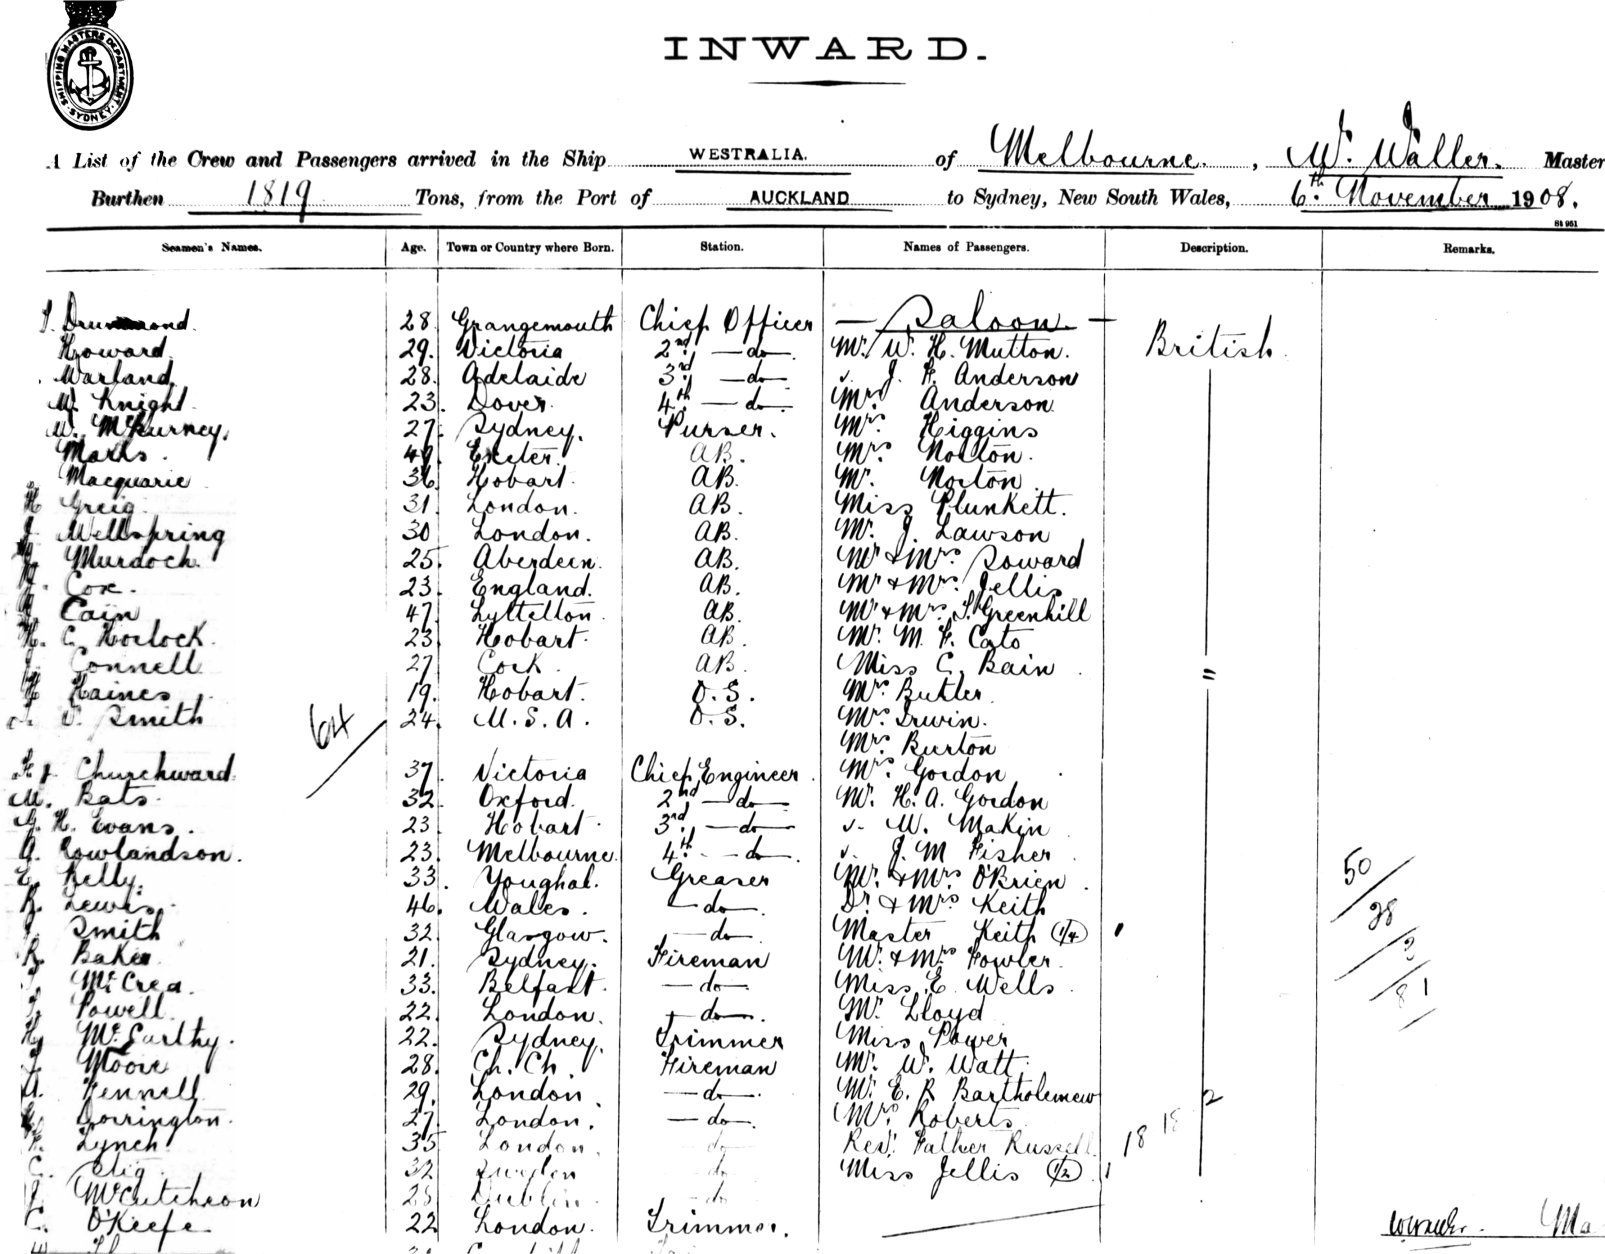 SHIPPING MASTERS DEPARTMENT SYDNEY
INWARD.
A List of the Crew and Passengers arrived in the Ship WESTRALIA. of Melbourne, W. Waller. Master
Burthen 1819 Tons, from the Port of AUCKLAND to Sydney, New South Wales, 6th November 1908.
St 951
Seamen's Names. Age. Town or Country where Born. Station. Names of Passengers. Description. Remarks.
Drummond. 28. Grangemouth Chief Officer — Saloon —
Howard. 29. Victoria 2nd — do — Mr. W. H. Mutton. British.
Warland. 28. Adelaide 3rd — do — J. F. Anderson
Knight. 23. Dover. 4th — do — Mrs Anderson
W. McKurney. 27. Sydney. Purser. Mrs. Higgins
Marks. Exeter. AB. Mrs. Norton.
Macquarie 36. Hobart. AB. Mr. Norton
H Greig. 31. London. AB. Miss Plunkett.
J. Wellspring 30 London. AB. Mr. J. Lawson
Murdoch. 25. Aberdeen. AB. Mr & Mrs. Soward
Cox. 23. England. AB. Mr & Mrs. Jellis
Cain 47. Lyttelton. AB. Mr & Mrs. S. Greenhill
H. C. Horlock. 23. Hobart. AB. Mr. M. F. Cato
J. Connell 27 Cork. AB. Miss C. Bain
H Haines 19. Hobart. O.S. Mrs. Butler "
W. Smith 24. U.S.A. O.S. Mrs. Irwin.
64 Mrs. Burton
Churchward 37. Victoria Chief Engineer. Mrs. Gordon
M. Bats. 32. Oxford. 2nd — do — Mr. H. A. Gordon
G. H. Evans. 23 Hobart. 3rd — do — W. Makin
G. Rowlandson. 23. Melbourne. 4th — do — J. M Fisher
E. Kelly. 33. Youghal. Greaser Mr. & Mrs O'Brien 50
R. Lewis. 46. Wales. — do — Dr & Mrs Keith 28
Smith 32. Glasgow. — do — Master Keith (1/4)
R. Baker 21. Sydney. Fireman Mr. & Mrs. Fowler. 3
McCrea. 33. Belfast. — do — Miss E. Wells 81
Powell. 22. London. — do — Mr. Lloyd
Hy McCarthy. 22. Sydney. Trimmer Miss Power
J. Moore 28. Ch. Ch. Fireman Mr. W. Watt.
A. Kennell 29. London. — do — Mr. E. R Bartholemew 2
Dorrington. 27. London. — do — Mrs. Roberts
Lynch 35 London. do Revd. Father Russell 18 18
C. 32 do Miss Jellis (1/2) 1
J. McCutcheon Dublin. do
C. O'Keefe 22 London. Trimmer.